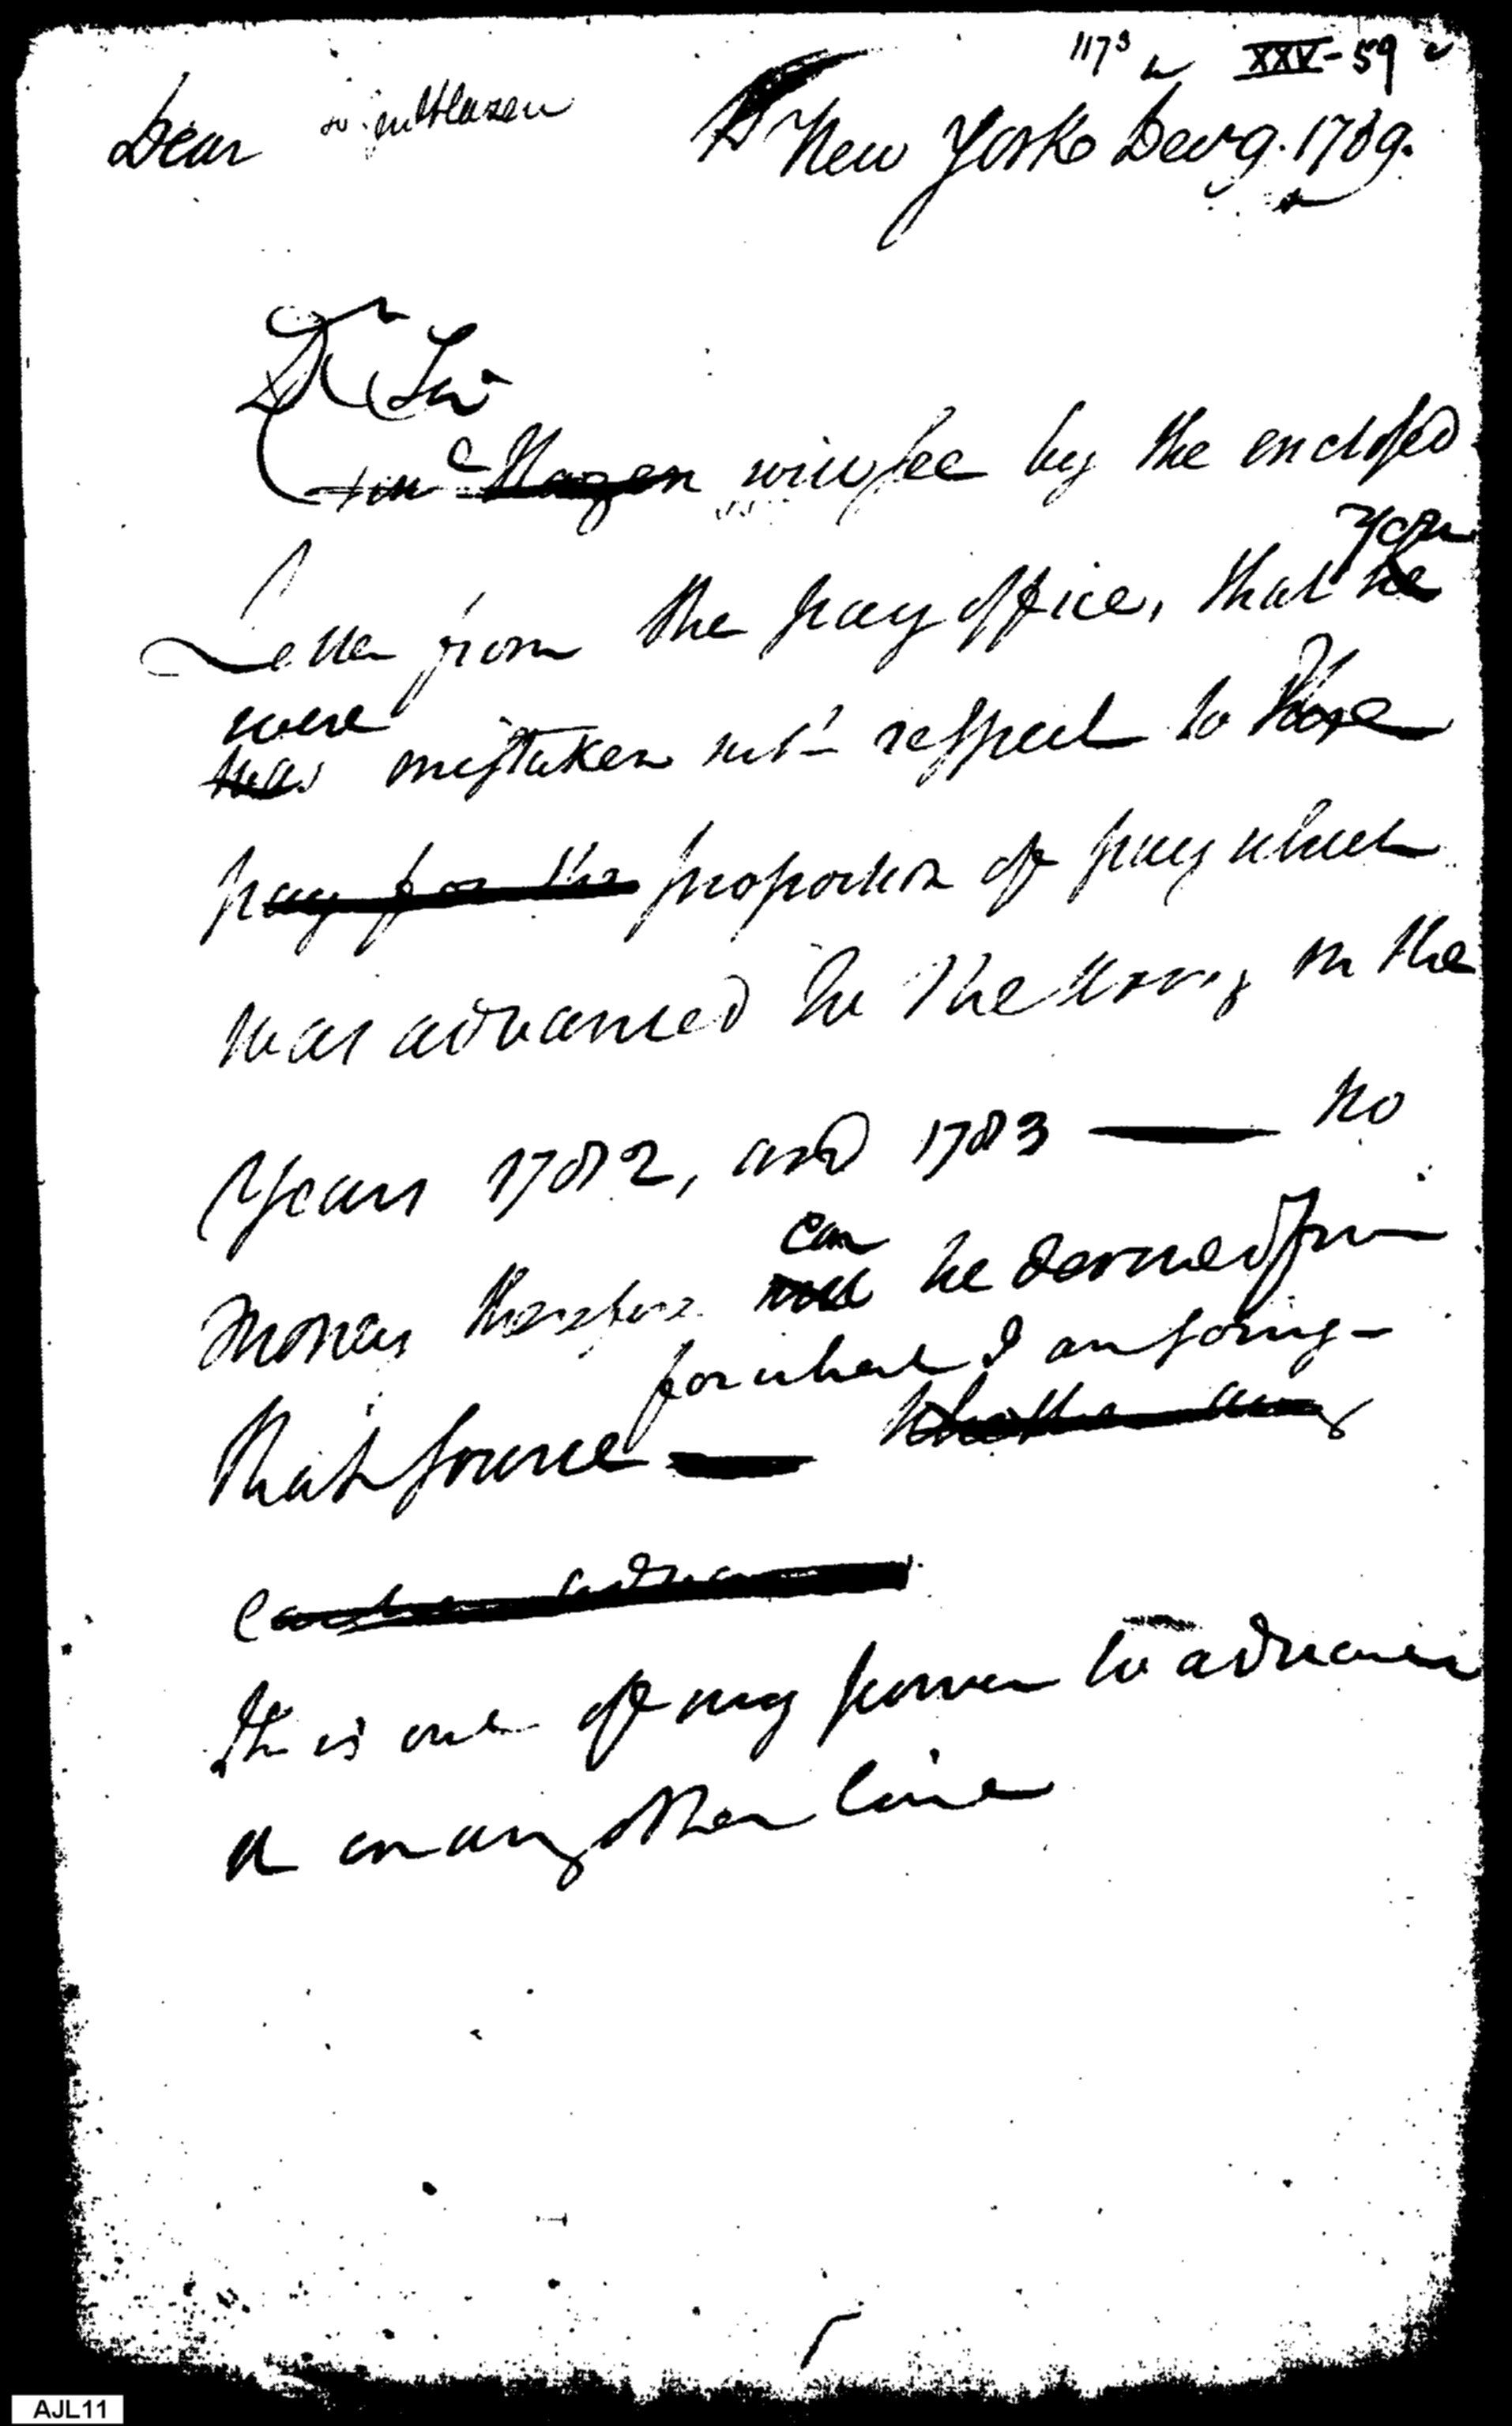 1173 XXV-59
Dear Hazen New York Decr 9. 1789.
Dr Sir
Hazen will see by the enclosed
you
Letter from the pay office, that he
were
was mistaken with respect to the
pay for the proportion of pay which
was advanced to the army in the
Years 1782, and 1783 — no
can
money therefore will be derived from
for what I am sorry -
that source — Whether any
It is out of my power to advance
it in any other line
AJL11